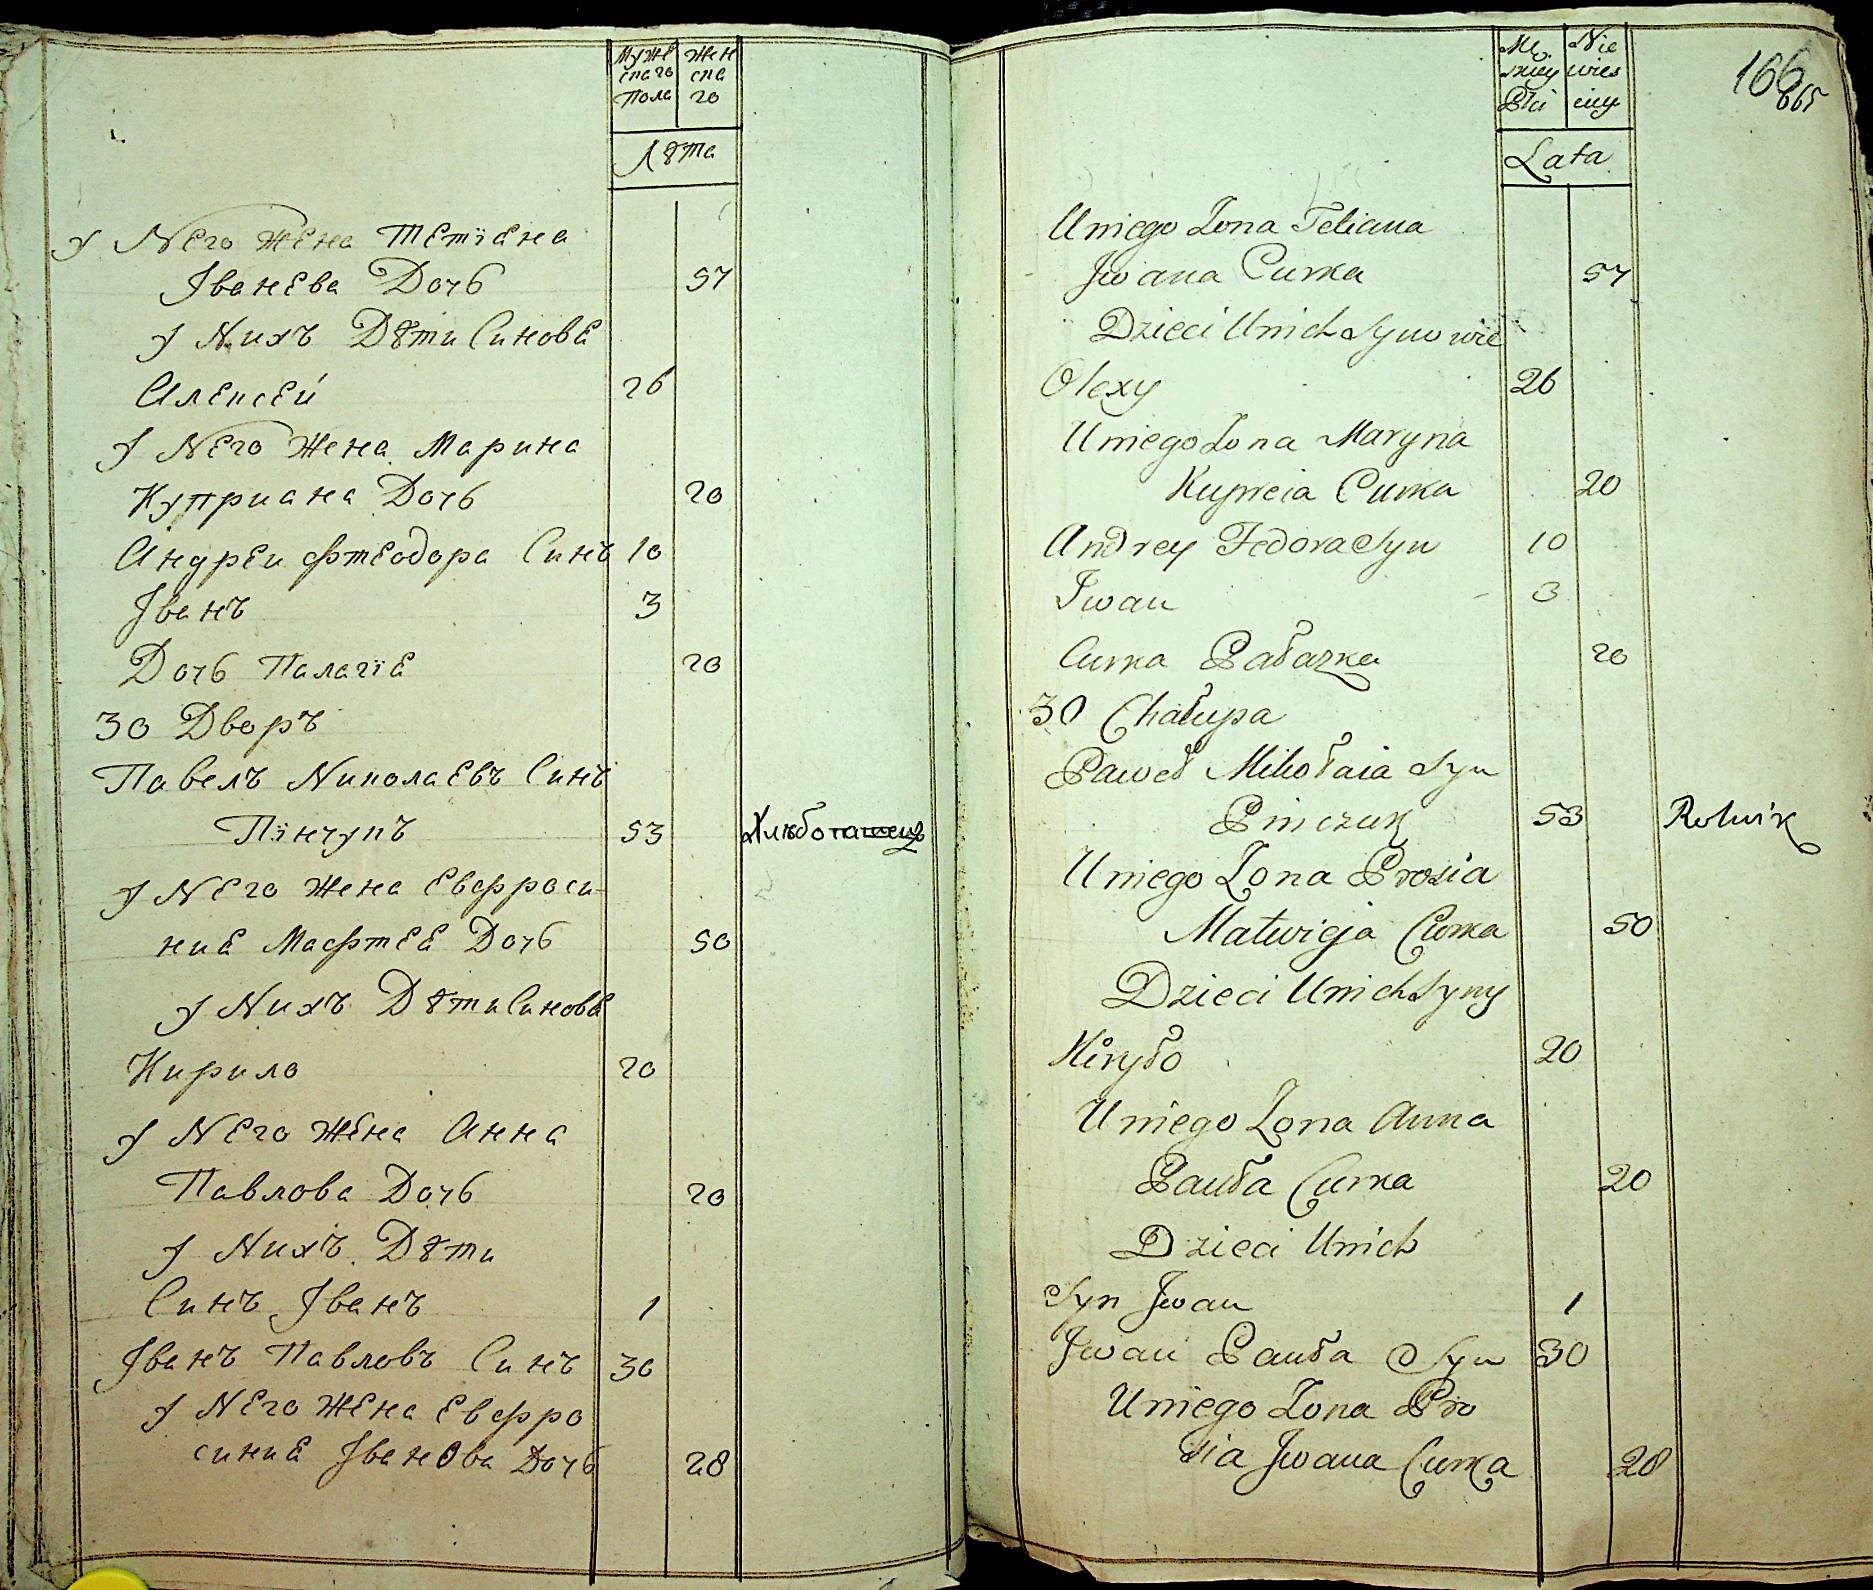 Муже
скаго
Пола
Жен
ска
го
Лѣта
У Него Жена Тетїана
Іванова Дочь 57
У Нихъ Дѣти Синова
Алексей 26
У Него Жена Марина
Куприана Дочь 20
Андреи Фтеодора Синъ 10
Іванъ 3
Дочь Палагїа 20
30 Дворъ
Павелъ Николаевъ Синъ
Пїнчукъ 53
У Него Жена Евфроси-
ниа Мафтеа Дочь 50
У Нихъ Дѣти Синова
Кирило 20
У Него Жена Анна
Павлова Дочь 20
У Нихъ Дѣти
Синъ Іванъ 1
Іванъ Павловъ Синъ 30
У Него Жена Евфро
синиа Іванова Дочь 28
Mę
skiey
Płci
Nie
wies
ciey
Lata
166
Uniego Zona Tetiana
Jwana Curka 57
Dzieci Unich Synowie
Olexy 26
Uniego Zona Maryna
Kupreia Curka 20
Andrey Fedora Syn 10
Jwan 3
Curka Pałazka 20
30 Chałupa
Paweł Mikołaia Syn
Pinczuk 53 Rolnik
Uniego Zona Prosia
Matwieja Curka 50
Dzieci Unich Syny
Kiryło 20
Uniego Zona Anna
Pauła Curka 20
Dzieci Unich
Syn Jwan 1
Jwan Pauła Syn 30
Uniego Zona Pro
sia Jwana Curka 28